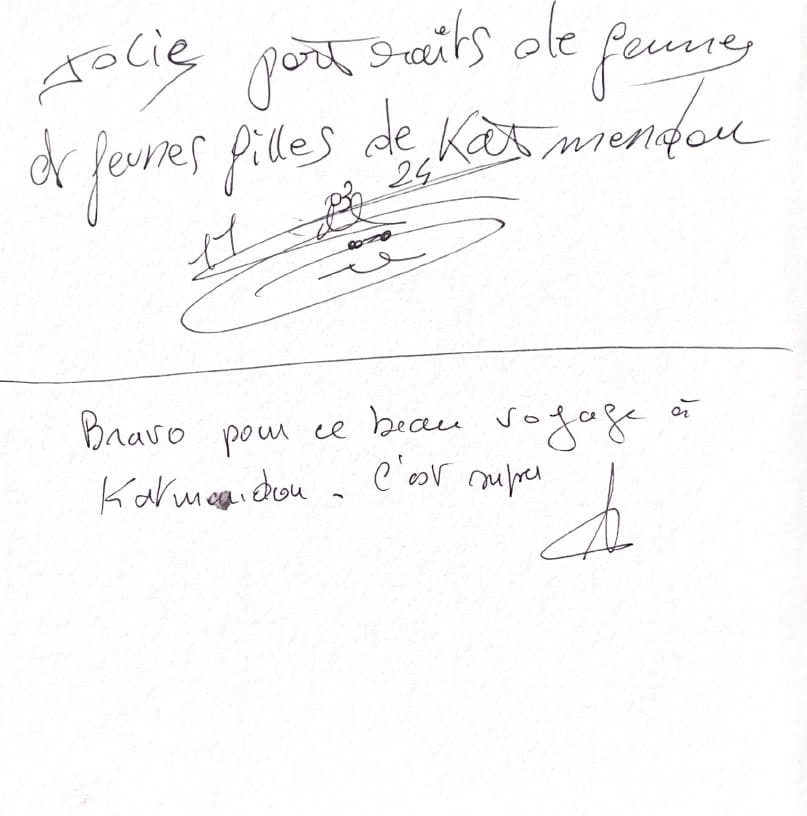 Jolies portraits de femmes
et jeunes filles de Katmendou
11 03 24
Bravo pour ce beau voyage à
Katmandou. C'est super